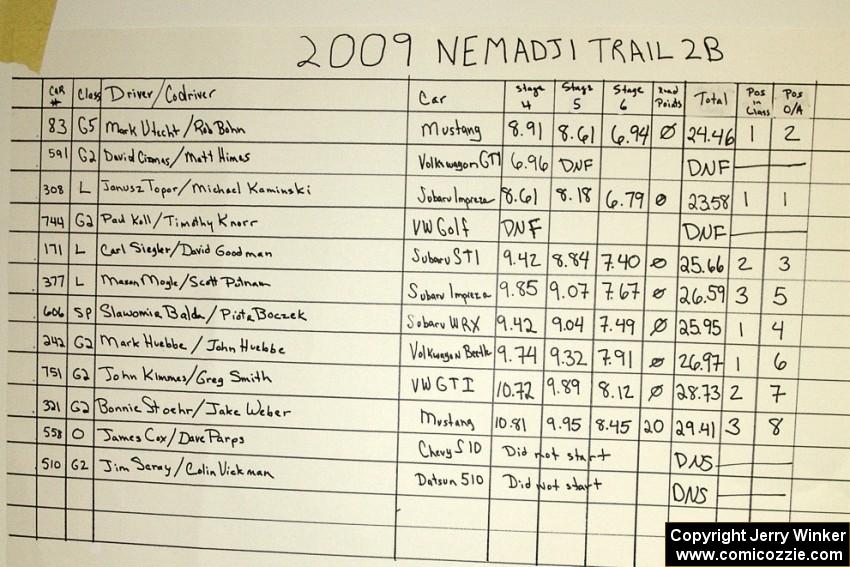 2009 NEMADJI TRAIL 2B
CAR # Class Driver/Codriver Car Stage 4 Stage 5 Stage 6 Road Points Total Pos in Class Pos O/A
83 G5 Mark Utecht/Rob Bohn Mustang 8.91 8.61 6.94 Ø 24.46 1 2
591 G2 David Cizmas/Matt Himes Volkwagon GTI 6.96 DNF DNF
308 L Janusz Topor/Michael Kaminski Subaru Impreza 8.61 8.18 6.79 Ø 23.58 1 1
744 G2 Paul Koll/Timothy Knorr VW Golf DNF DNF
171 L Carl Siegler/David Goodman Subaru STI 9.42 8.84 7.40 Ø 25.66 2 3
377 L Mason Moyle/Scott Putnam Subaru Impreza 9.85 9.07 7.67 Ø 26.59 3 5
606 SP Slawomir Balda/Piotr Boczek Subaru WRX 9.42 9.04 7.49 Ø 25.95 1 4
242 G2 Mark Huebbe/John Huebbe Volkwagon Beetle 9.74 9.32 7.91 Ø 26.97 1 6
751 G2 John Kimmes/Greg Smith VW GTI 10.72 9.89 8.12 Ø 28.73 2 7
321 G2 Bonnie Stoehr/Jake Weber Mustang 10.81 9.95 8.45 20 29.41 3 8
558 O James Cox/Dave Parps Chevy S10 Did not start DNS
510 G2 Jim Scray/Colin Vickman Datsun 510 Did not start DNS
Copyright Jerry Winker
www.comicozzie.com